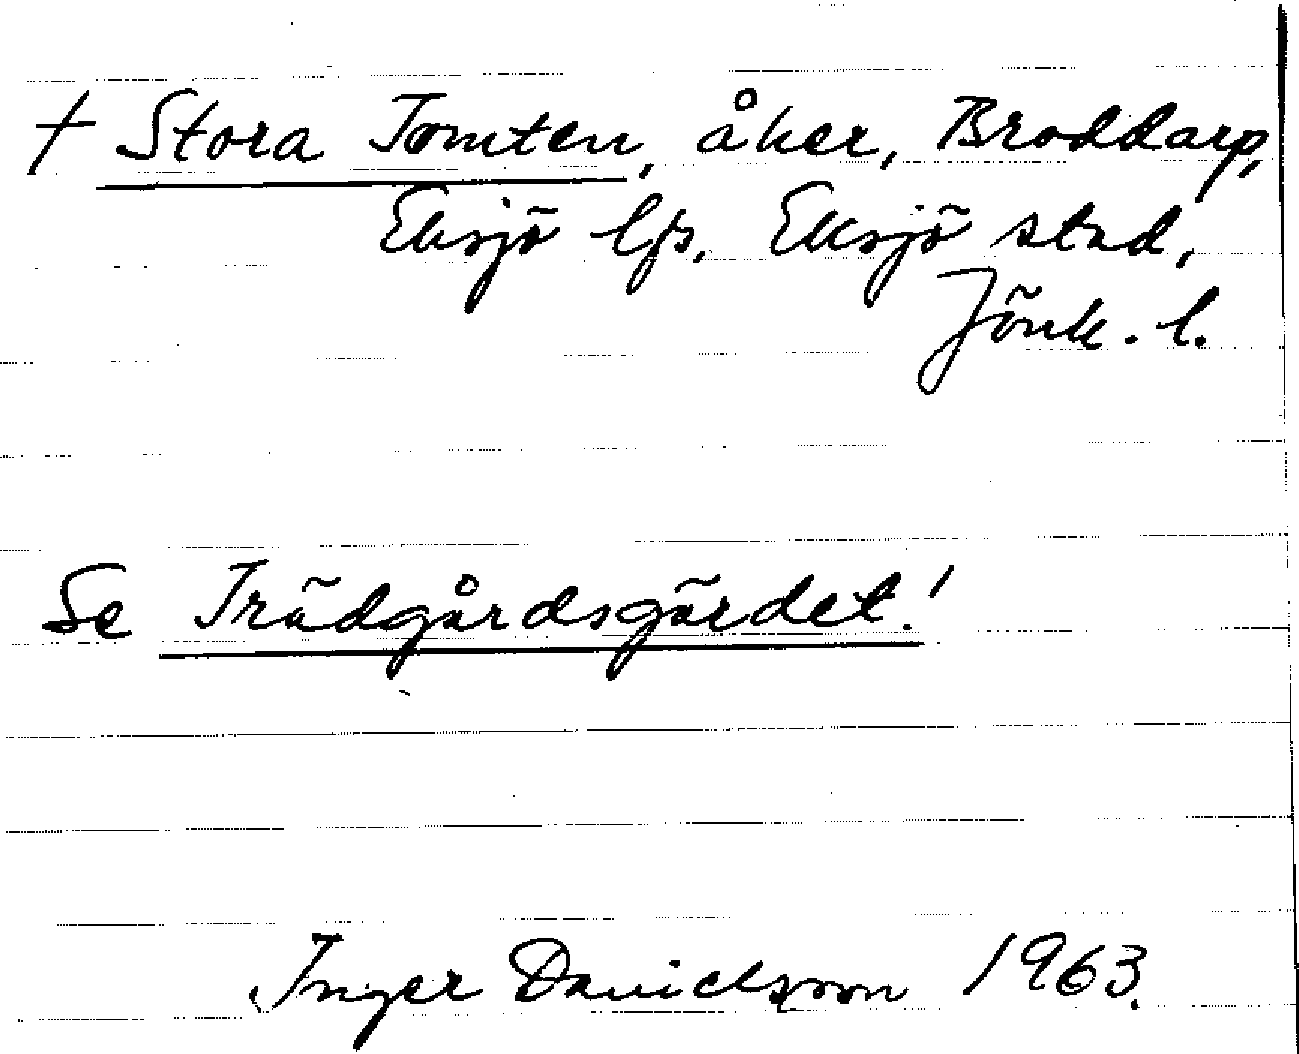 † Stora Tomten, åker, Broddarp,
Eksjö lfs, Eksjö stad,
Jönk. l.
Se Trädgårdsgärdet!
Inger Danielsson 1963.